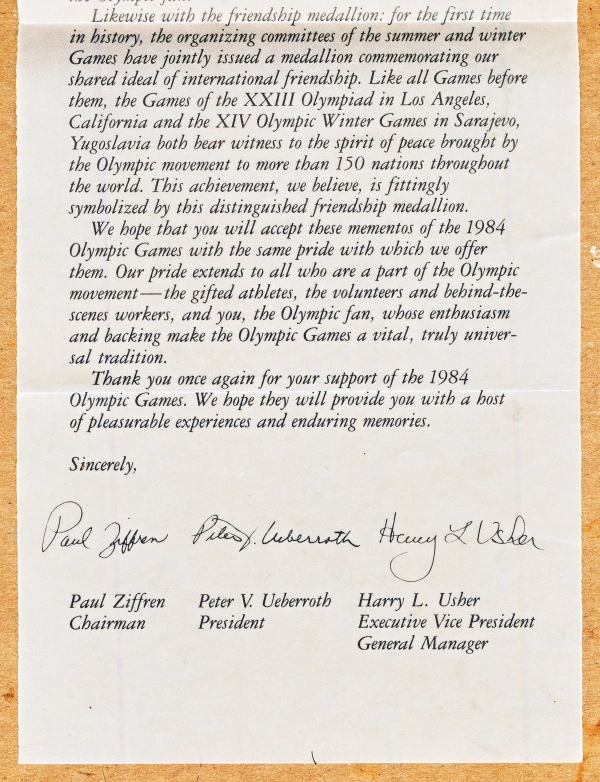 the Olympic fan.
Likewise with the friendship medallion: for the first time
in history, the organizing committees of the summer and winter
Games have jointly issued a medallion commemorating our
shared ideal of international friendship. Like all Games before
them, the Games of the XXIII Olympiad in Los Angeles,
California and the XIV Olympic Winter Games in Sarajevo,
Yugoslavia both bear witness to the spirit of peace brought by
the Olympic movement to more than 150 nations throughout
the world. This achievement, we believe, is fittingly
symbolized by this distinguished friendship medallion.
We hope that you will accept these mementos of the 1984
Olympic Games with the same pride with which we offer
them. Our pride extends to all who are a part of the Olympic
movement—the gifted athletes, the volunteers and behind-the-
scenes workers, and you, the Olympic fan, whose enthusiasm
and backing make the Olympic Games a vital, truly univer-
sal tradition.
Thank you once again for your support of the 1984
Olympic Games. We hope they will provide you with a host
of pleasurable experiences and enduring memories.
Sincerely,
Paul Ziffren Peter V. Ueberroth Harry L Usher
Paul Ziffren Peter V. Ueberroth Harry L. Usher
Chairman President Executive Vice President
General Manager